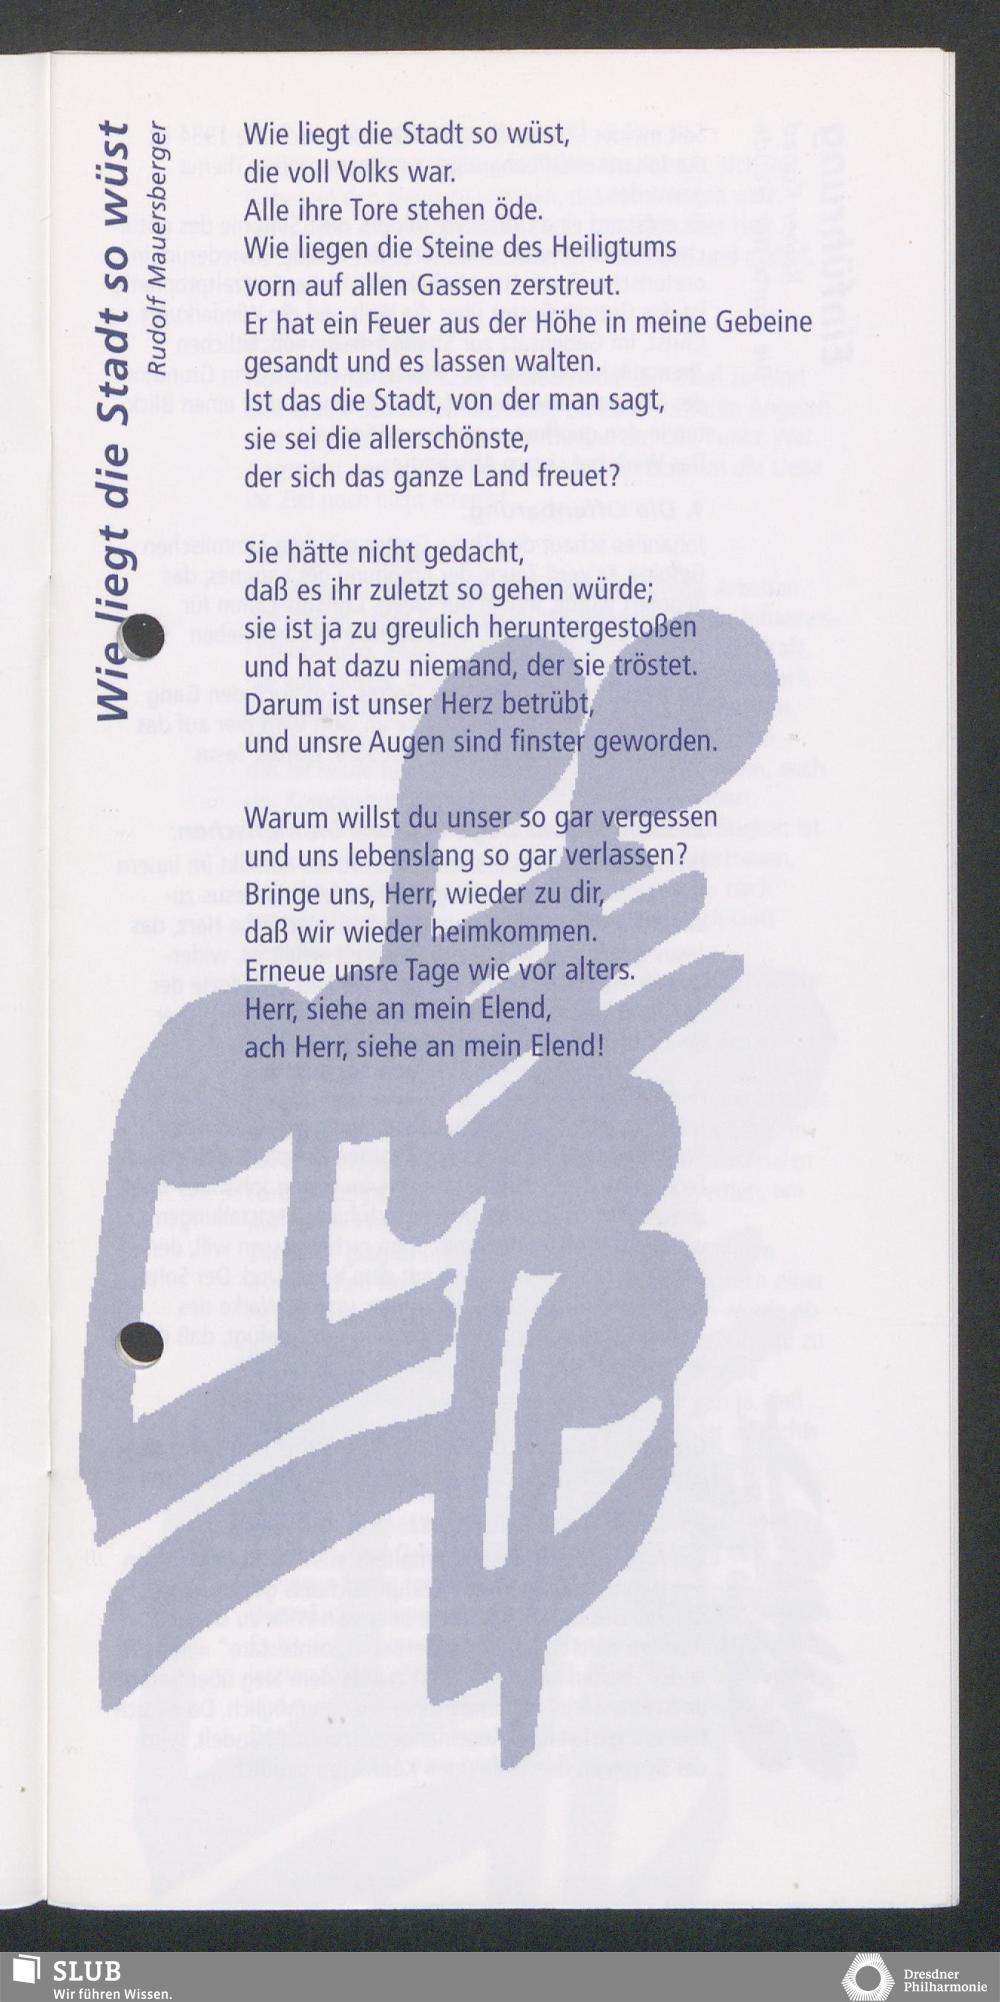 Wie liegt die Stadt so wüst
Rudolf Mauersberger
Wie liegt die Stadt so wüst,
die voll Volks war.
Alle ihre Tore stehen öde.
Wie liegen die Steine des Heiligtums
vorn auf allen Gassen zerstreut.
Er hat ein Feuer aus der Höhe in meine Gebeine
gesandt und es lassen walten.
Ist das die Stadt, von der man sagt,
sie sei die allerschönste,
der sich das ganze Land freuet?
Sie hätte nicht gedacht,
daß es ihr zuletzt so gehen würde;
sie ist ja zu greulich heruntergestoßen
und hat dazu niemand, der sie tröstet.
Darum ist unser Herz betrübt,
und unsre Augen sind finster geworden.
Warum willst du unser so gar vergessen
und uns lebenslang so gar verlassen?
Bringe uns, Herr, wieder zu dir,
daß wir wieder heimkommen.
Erneue unsre Tage wie vor alters.
Herr, siehe an mein Elend,
ach Herr, siehe an mein Elend!
SLUB
Wir führen Wissen.
Dresdner
Philharmonie